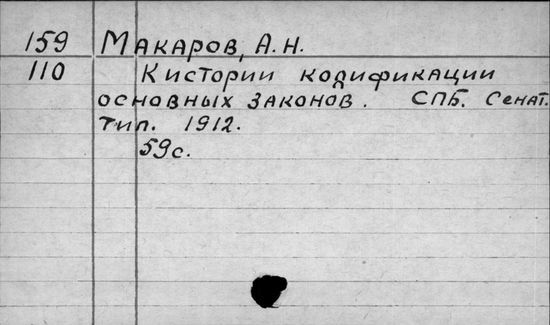 159 Макаров, А.Н.
110 К истории кодификации
основных законов. СПБ. Сенат.
тип. 1912.
59с.